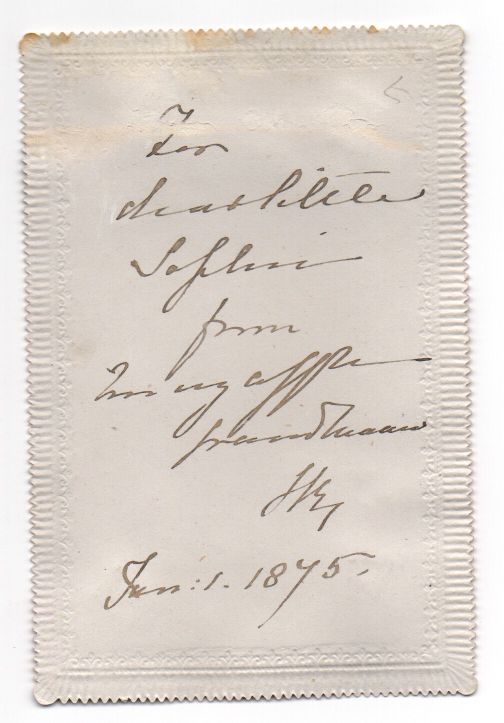 For
dear little
Sophie
from
her vy affte
Grandmama
VR
Jan: 1. 1875.